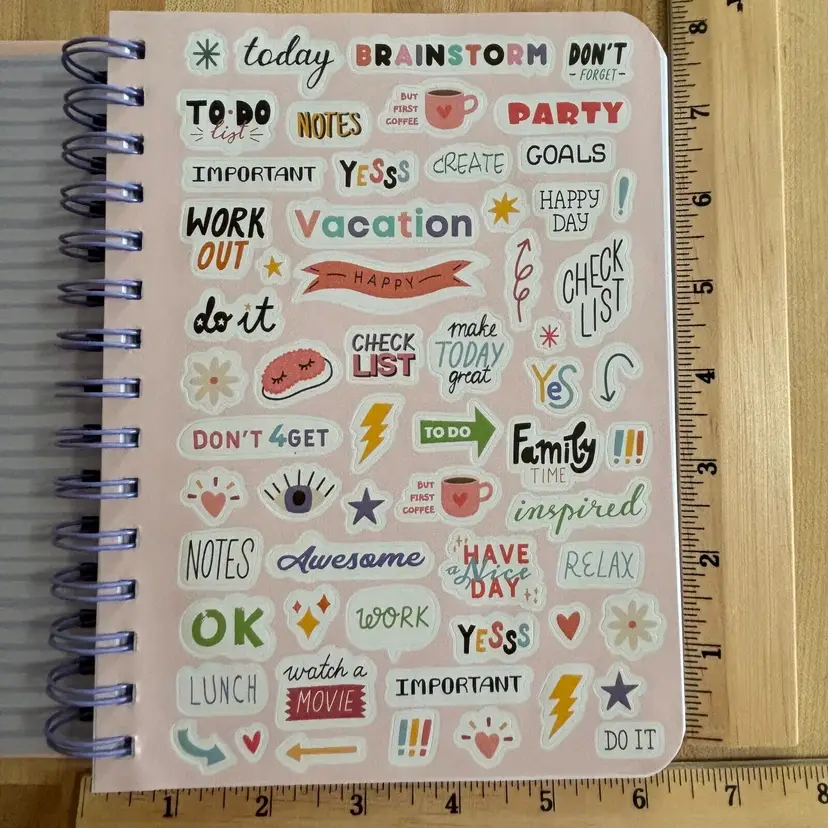 today
BRAINSTORM
DON'T
- FORGET -
TO-DO
list
NOTES
BUT
FIRST
COFFEE
PARTY
IMPORTANT
YESSS
CREATE
GOALS
WORK
OUT
Vacation
HAPPY
DAY
!
HAPPY
CHECK
LIST
do it
CHECK
LIST
make
TODAY
great
YES
DON'T 4GET
TO DO
Family
TIME
!!!
BUT
FIRST
COFFEE
inspired
NOTES
Awesome
HAVE
a Nice
DAY
RELAX
OK
WORK
YESSS
LUNCH
watch a
MOVIE
IMPORTANT
!!!
DO IT
8
7
6
5
4
3
2
1
1 2 3 4 5 6 7 8